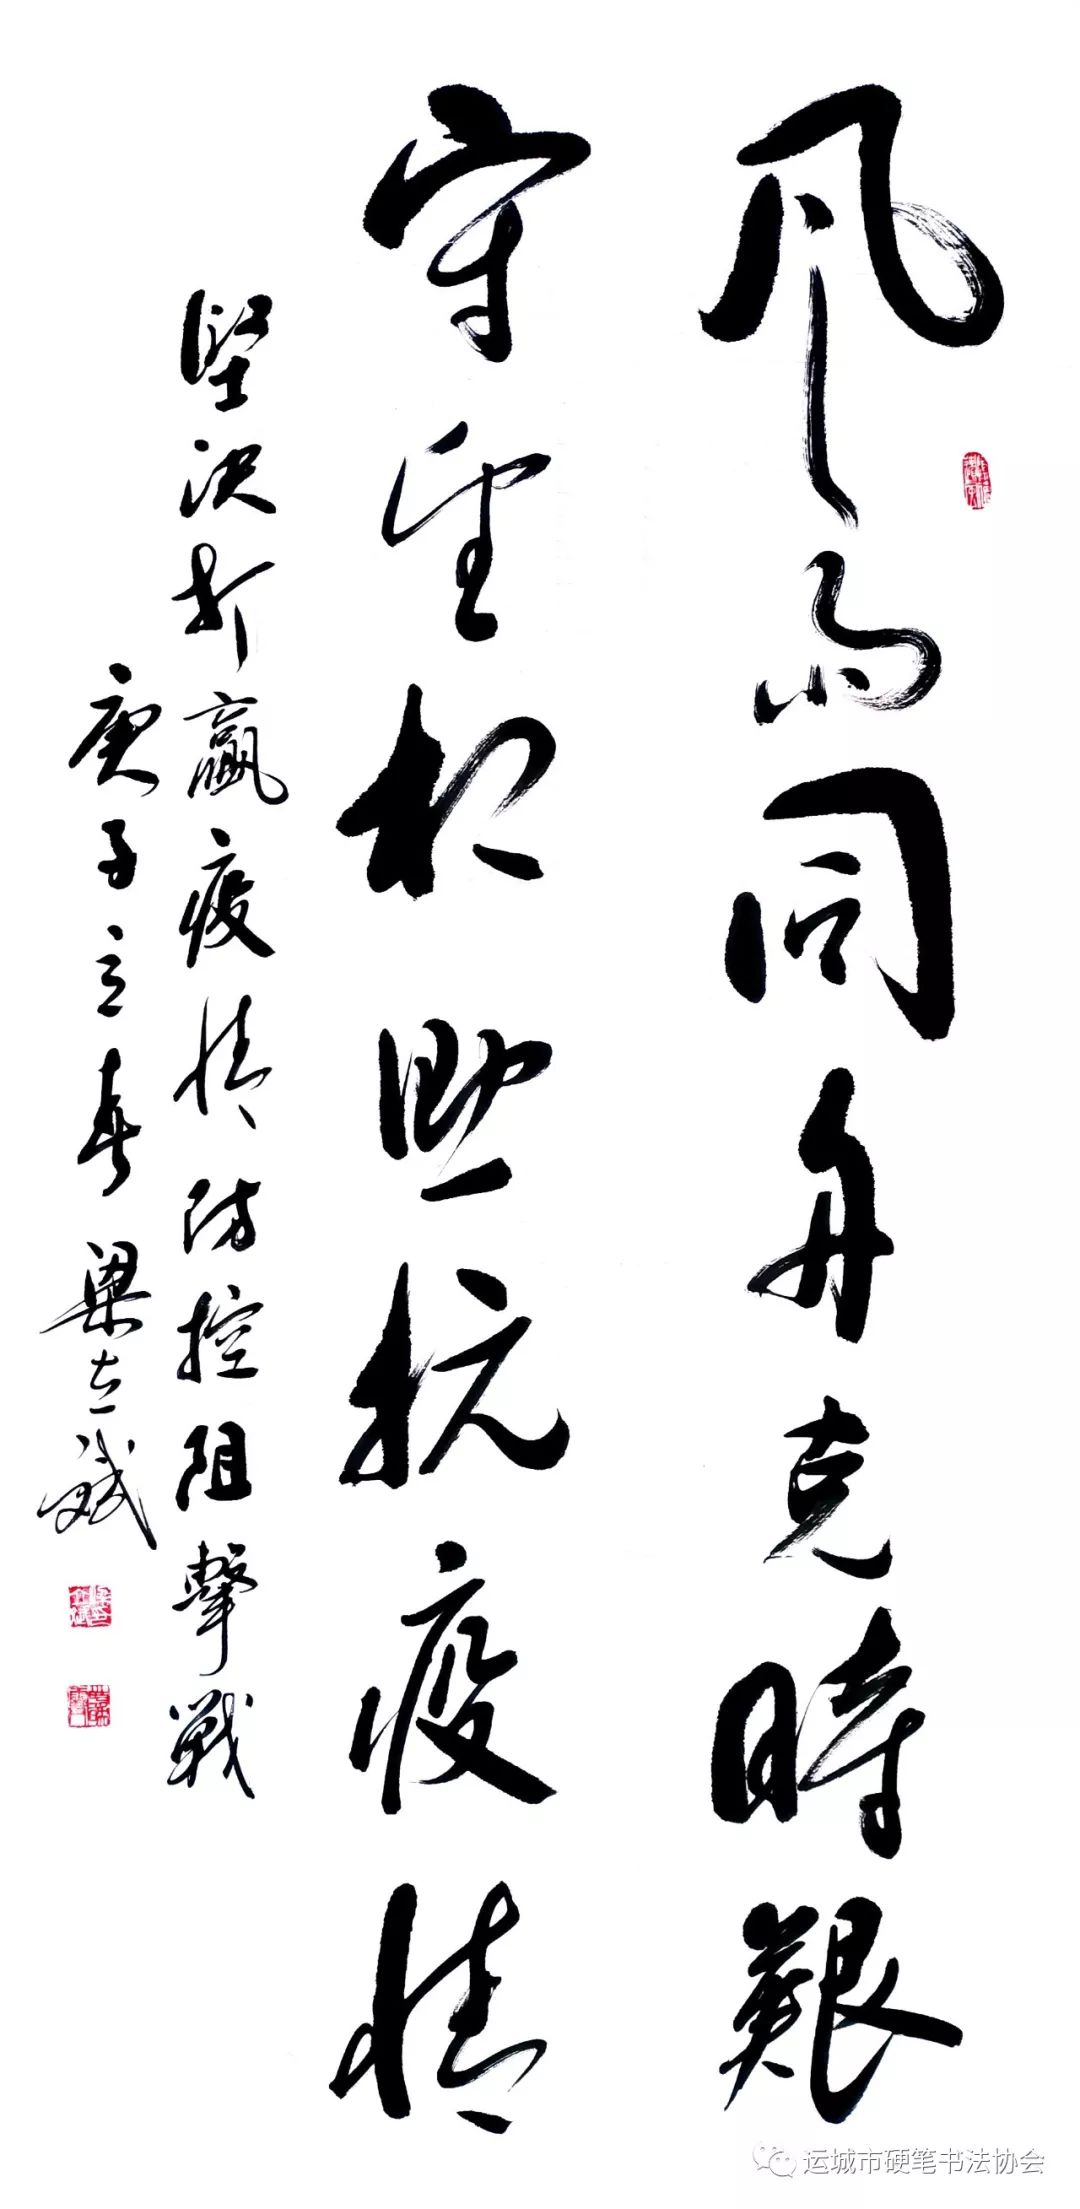 风雨同舟克時艱
守望相助抗疫情
堅决打贏疫情防控阻擊戰
庚子立春 梁立斌
运城市硬笔书法协会